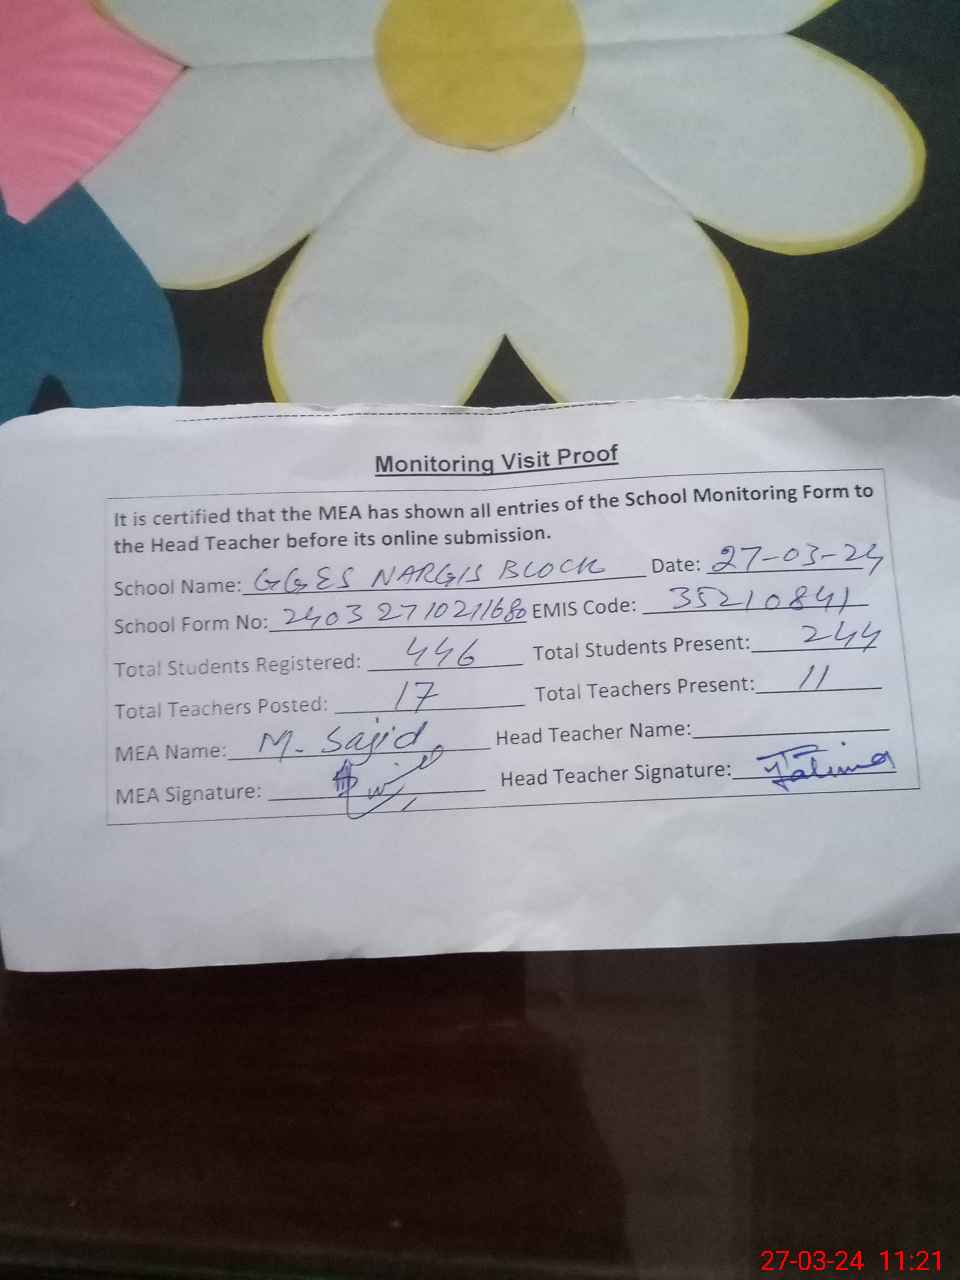 Monitoring Visit Proof
It is certified that the MEA has shown all entries of the School Monitoring Form to
the Head Teacher before its online submission.
School Name: GGES NARGIS BLOCK Date: 27-03-24
School Form No: 24032710211680 EMIS Code: 35210841
Total Students Registered: 446 Total Students Present: 244
Total Teachers Posted: 17 Total Teachers Present: 11
MEA Name: M. Sajid Head Teacher Name:
MEA Signature: Head Teacher Signature:
27-03-24 11:21